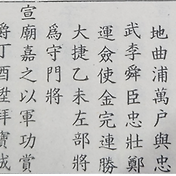 地曲浦萬戶與忠
武李舜臣忠壯鄭
運僉使金完連勝
大捷乙未左部將
爲守門將
宣廟嘉之以軍功賞
爵丁酉陞拜寶城